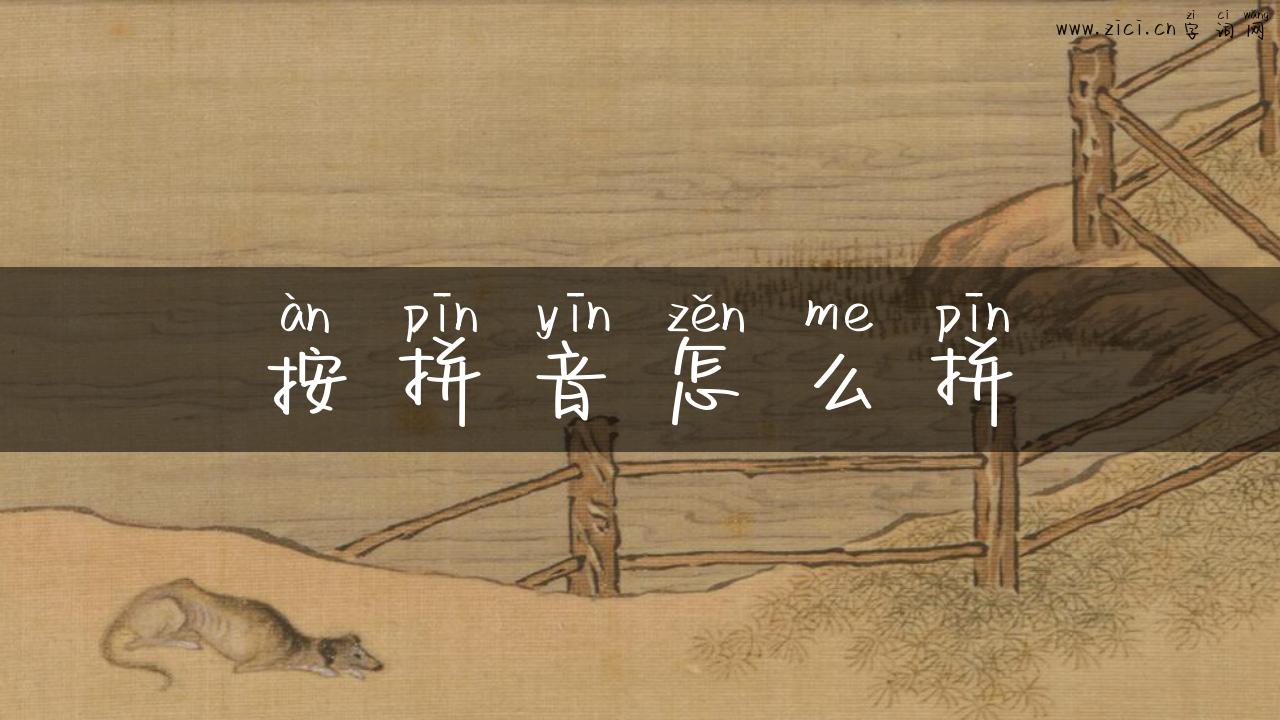 zì cí wǎng
www.zici.cn 字 词 网
àn pīn yīn zěn me pīn
按 拼 音 怎 么 拼